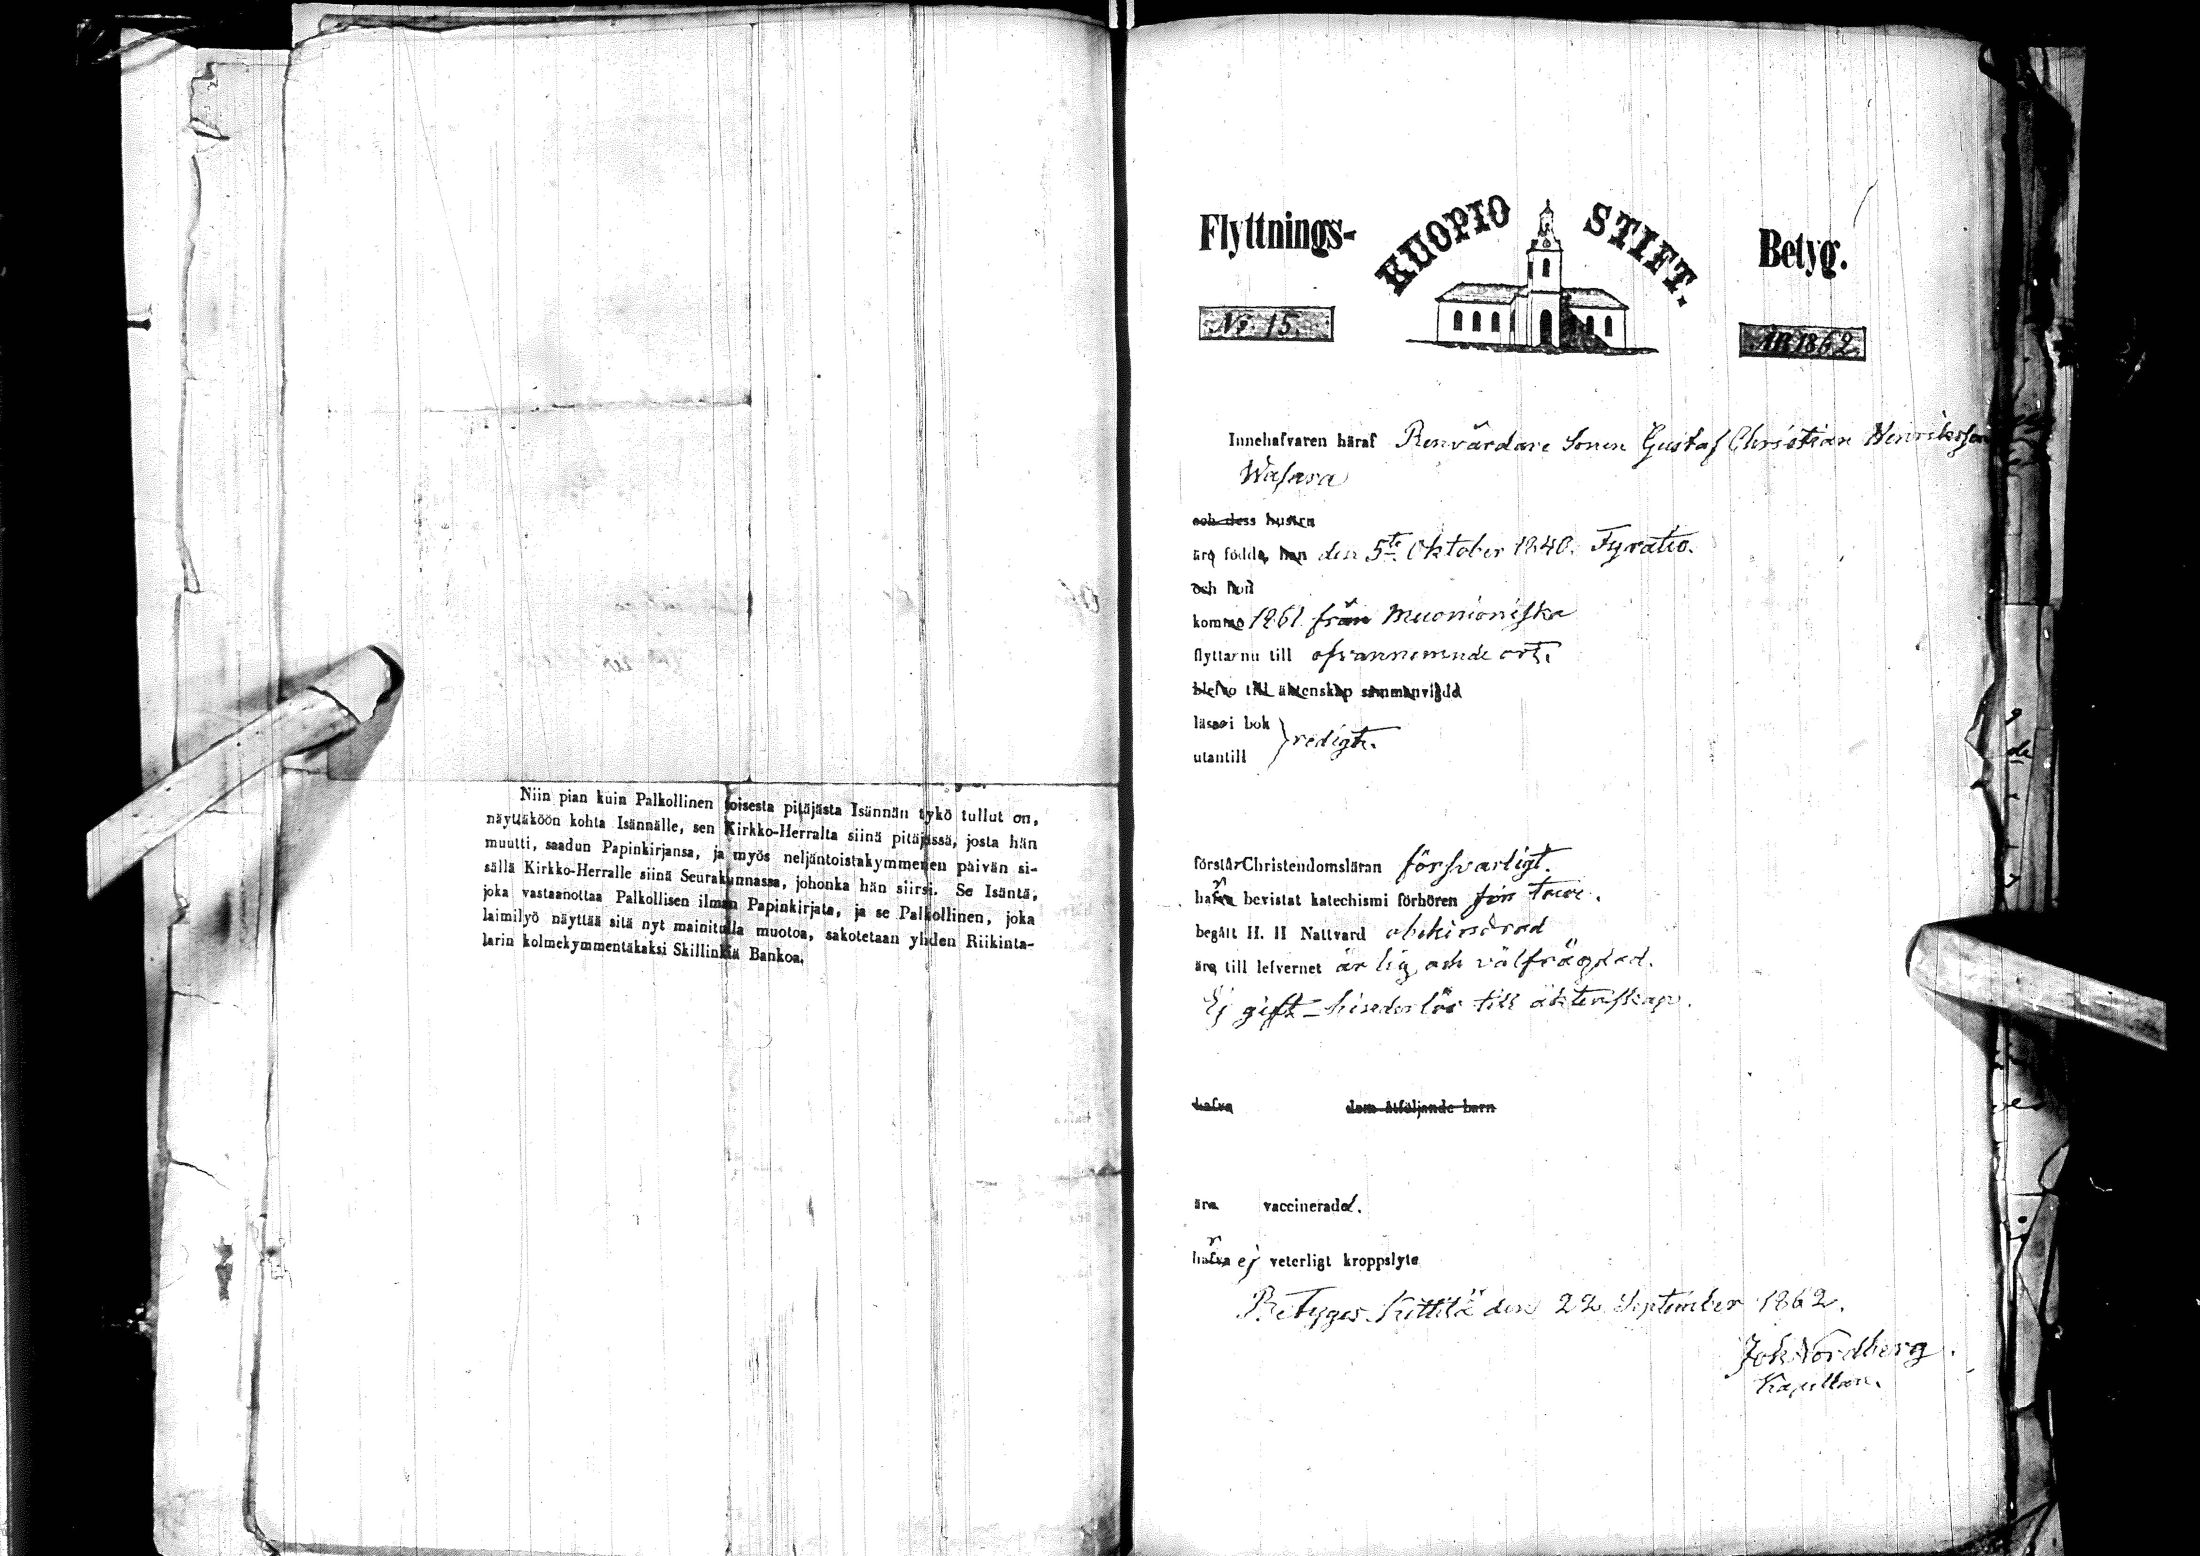 Niin pian kuin Palkollinen toisesta pitäjästa Isännän tykö tullut on,
näyttäköön kohta Isännälle, sen Kirkko-Herralta siinä pitäjässä, josta hän
muutti, saadun Papinkirjansa, ja myös neljäntoistakymmenen päivän si-
sällä Kirkko-Herralle siinä Seurakunnassa, johonka hän siirsi. Se Isäntä,
joka vastaanottaa Palkollisen ilman Papinkirjata, ja se Palkollinen, joka
laimilyö näyttää sitä nyt mainitulla muotoa, sakotetaan yhden Riikinta-
larin kolmekymmentäkaksi Skillinkiä Bankoa.
Flyttnings- KUOPIO STIFT. Betyg.
No 15. ÅR 1862
Innehafvaren häraf Renvårdare Sonen Gustaf Christian Henriksson
Wasara
och dess hustru
äro födda, han den 5te Oktober 1840.
och hon
kommo 1861 från Muonioniska
flyttar nu till ofvannemnde ort.
blefvo till äktenskap sammanvigda
läsa i bok
utantill } redigt.
förstår Christendomsläran försvarligt.
hafva bevistat katechismi förhören
begått H. H Nattvard obehindrad
äro till lefvernet ärlig och välfrägdad.
Ej gift - hinderlös till äktenskap.
hafva dem åtföljande barn
äro vaccinerad.
hafva ej veterligt kroppslyte
Betygas Kittilä den 22 September 1862.
Joh Nordberg.
Kapellan.